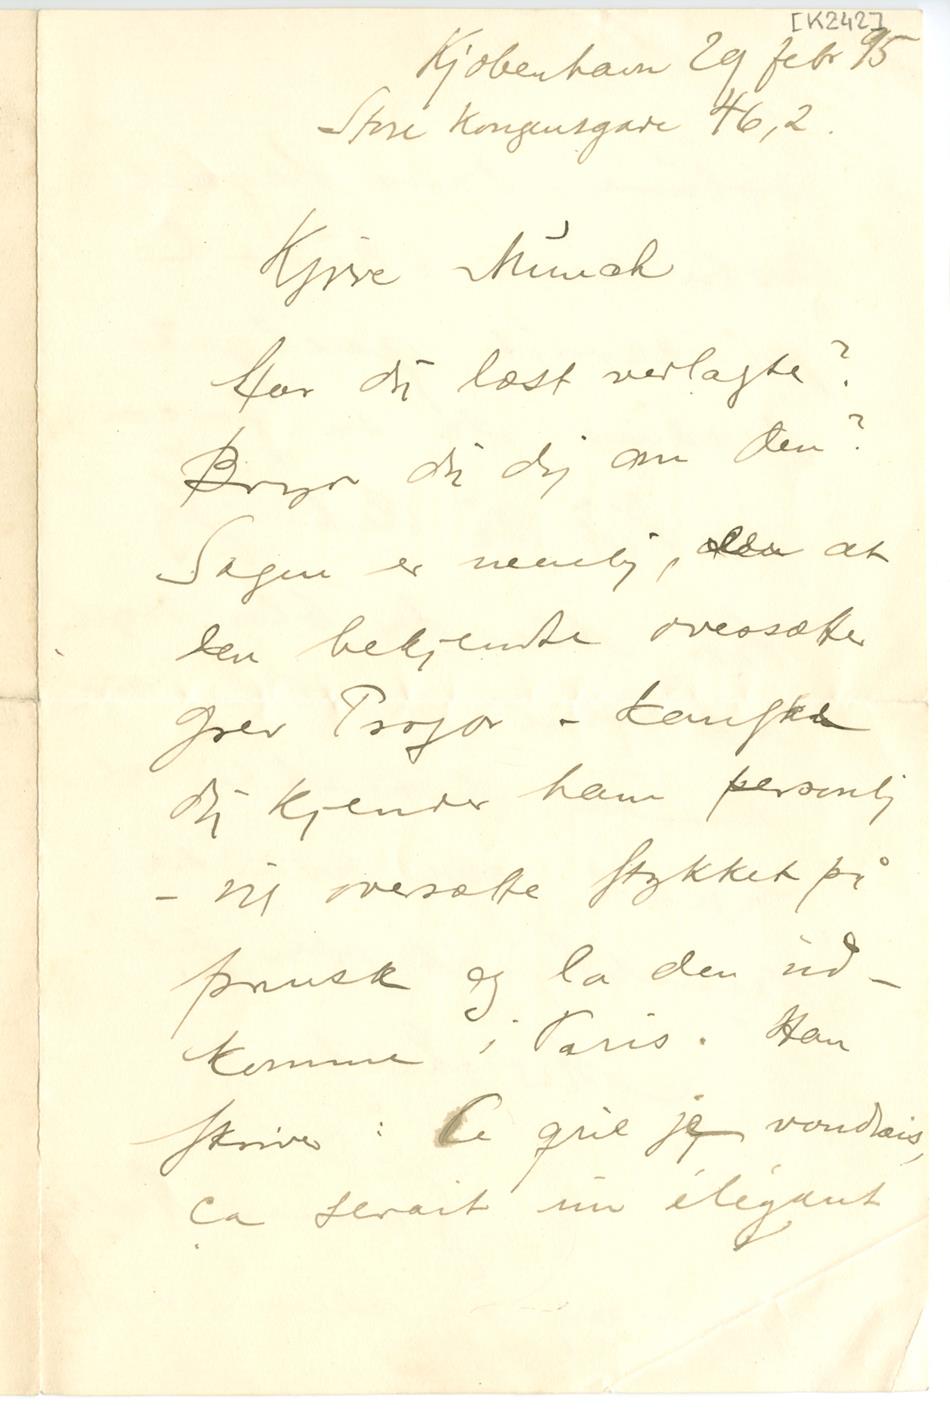 [K242]
Kjöbenhavn 29 febr 95
Store Kongensgade 46, 2.
Kjære Munch
Har du læst vedlagte?
Bryr du dig om den?
Sagen er nemlig, at
den bekjendte oversætter
grev Prozor - kanske
du kjender ham personlig
- vil oversætte stykket på
fransk og la den ud-
komme i Paris. Han
skriver: Ce que je voudrais,
ca serait un élégant